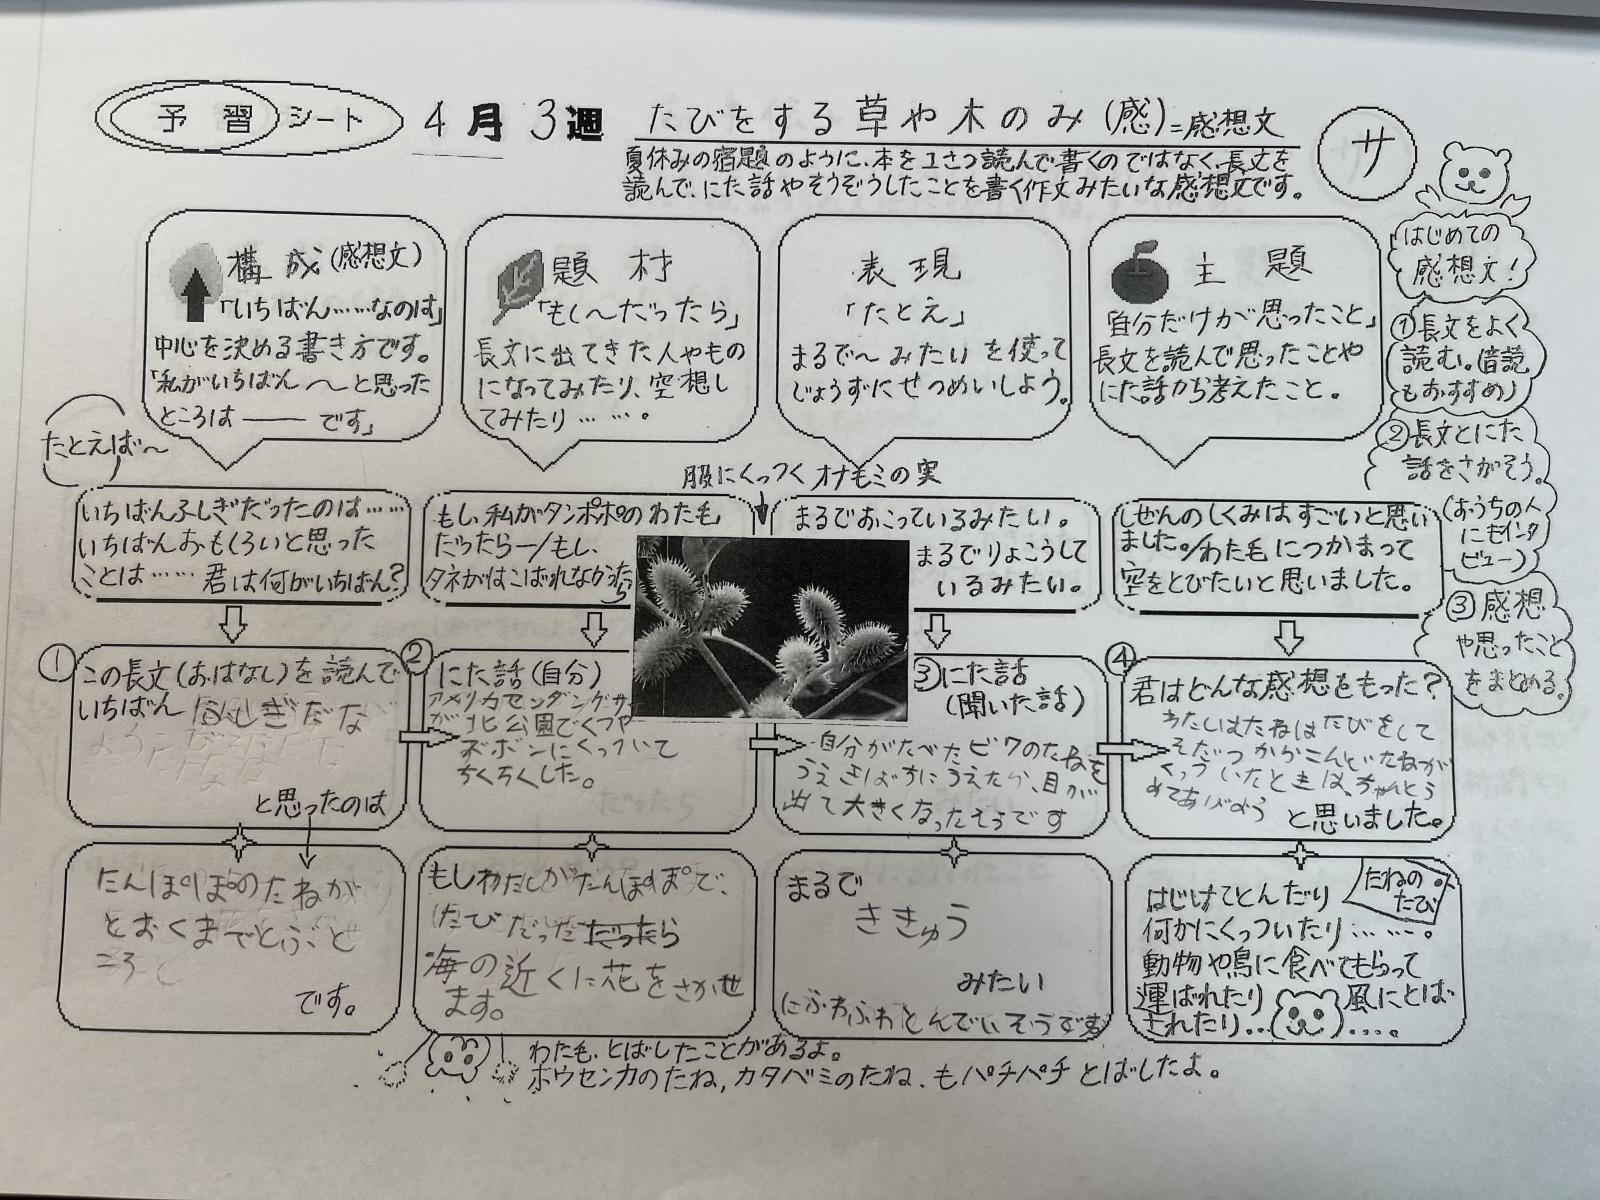 予習シート 4月3週 たびをする草や木のみ(感)=感想文
夏休みの宿題のように、本を1さつ読んで書くのではなく、長文を
読んで、にた話やそうぞうしたことを書く作文みたいな感想文です。
サ
はじめての
感想文!
①長文をよく
読む。(音読
もおすすめ)
②長文とにた
話をさがそう。
(おうちの人
にもインタ
ビュー)
③感想
や思ったこと
をまとめる。
構成(感想文)
「いちばん……なのは」
中心を決める書き方です。
「私がいちばん〜と思った
ところは―― です」
題材
「もし〜だったら」
長文に出てきた人やもの
になってみたり、空想し
てみたり……。
表現
「たとえ」
まるで〜みたいを使って
じょうずにせつめいしよう。
主題
「自分だけが思ったこと」
長文を読んで思ったことや
にた話から考えたこと。
たとえば〜
服にくっつくオナモミの実
いちばんふしぎだったのは……
いちばんおもしろいと思った
ことは…… 君は何がいちばん?
もし、私がタンポポのわた毛
だったら―/もし、
タネがはこばれなかったら
まるでおこっているみたい。
まるでりょこうして
いるみたい。
しぜんのしくみはすごいと思い
ました。/わた毛につかまって
空をとびたいと思いました。
①この長文(おはなし)を読んで
いちばん ふしぎだな
と思ったのは
②にた話(自分)
アメリカセンダングサ
が北公園でくつや
ズボンにくっついて
ちくちくした。
③にた話
(聞いた話)
自分がたべたビワのたねを
うえきばちにうえたら、目が
出て大きくなったそうです
④君はどんな感想をもった?
わたしはたねはたびをして
そだつからこんどたねが
くっついたときは、ちゃんとう
めてあげよう
と思いました。
たんぽぽのたねが
とおくまでとぶと
ころ
です。
もしわたしがたんぽぽで、
たびだった だったら
海の近くに花をさかせ
ます。
まるで
ききゅう
みたい
にふわふわとんでいそうです
たねの
たび
はじけてとんだり
何かにくっついたり……。
動物や鳥に食べてもらって
運ばれたり 風にとば
されたり‥ ….
わた毛、とばしたことがあるよ。
ホウセンカのたね、カタバミのたね、もパチパチとばしたよ。